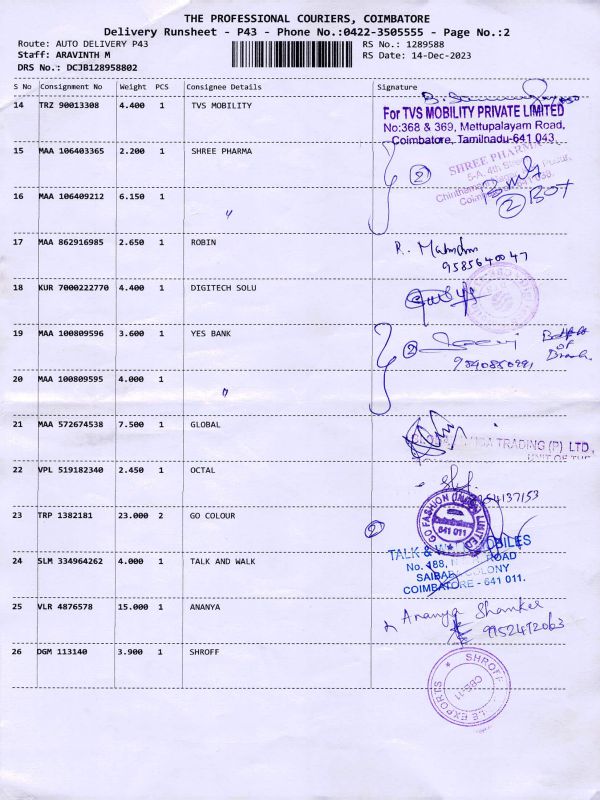 THE PROFESSIONAL COURIERS, COIMBATORE
Delivery Runsheet - P43 - Phone No.:0422-3505555 - Page No.:2
Route: AUTO DELIVERY P43 RS No.: 1289588
Staff: ARAVINTH M RS Date: 14-Dec-2023
DRS No.: DCJB128958802
S No Consignment No Weight PCS Consignee Details Signature
14 TRZ 90013308 4.400 1 TVS MOBILITY
For TVS MOBILITY PRIVATE LIMITED
No:368 & 369, Mettupalayam Road,
Coimbatore, Tamilnadu-641 043.
15 MAA 106403365 2.200 1 SHREE PHARMA
SHREE PHARMA
5-A, 4th
2
16 MAA 106409212 6.150 1 "
2
17 MAA 862916985 2.650 1 ROBIN
9585640047
18 KUR 7000222770 4.400 1 DIGITECH SOLU
19 MAA 100809596 3.600 1 YES BANK
2
of
20 MAA 100809595 4.000 1 "
21 MAA 572674538 7.500 1 GLOBAL
TRADING (P) LTD.,
UNIT OF THE
22 VPL 519182340 2.450 1 OCTAL
23 TRP 1382181 23.000 2 GO COLOUR
2
GO FASHION (INDIA) LIMITED
Coimbatore
641 011
24 SLM 334964262 4.000 1 TALK AND WALK
TALK & MOBILES
No. 488, ROAD
SAIBABA COLONY
COIMBATORE - 641 011.
25 VLR 4876578 15.000 1 ANANYA
Ananya Shankar
26 DGM 113140 3.900 1 SHROFF
SHROFF
CBE-11
EXPORTS